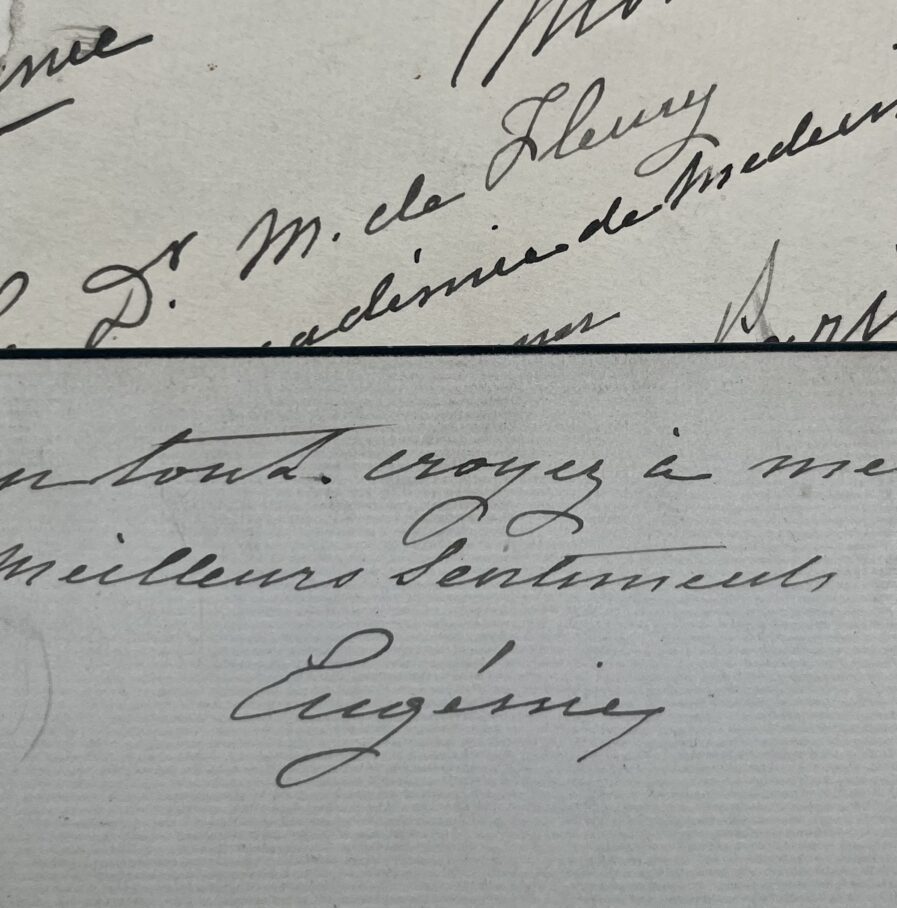 Mon
Dr. M. de Fleury
académie de Medecin
tout. croyez à me
Meilleurs Sentiments
Eugénie